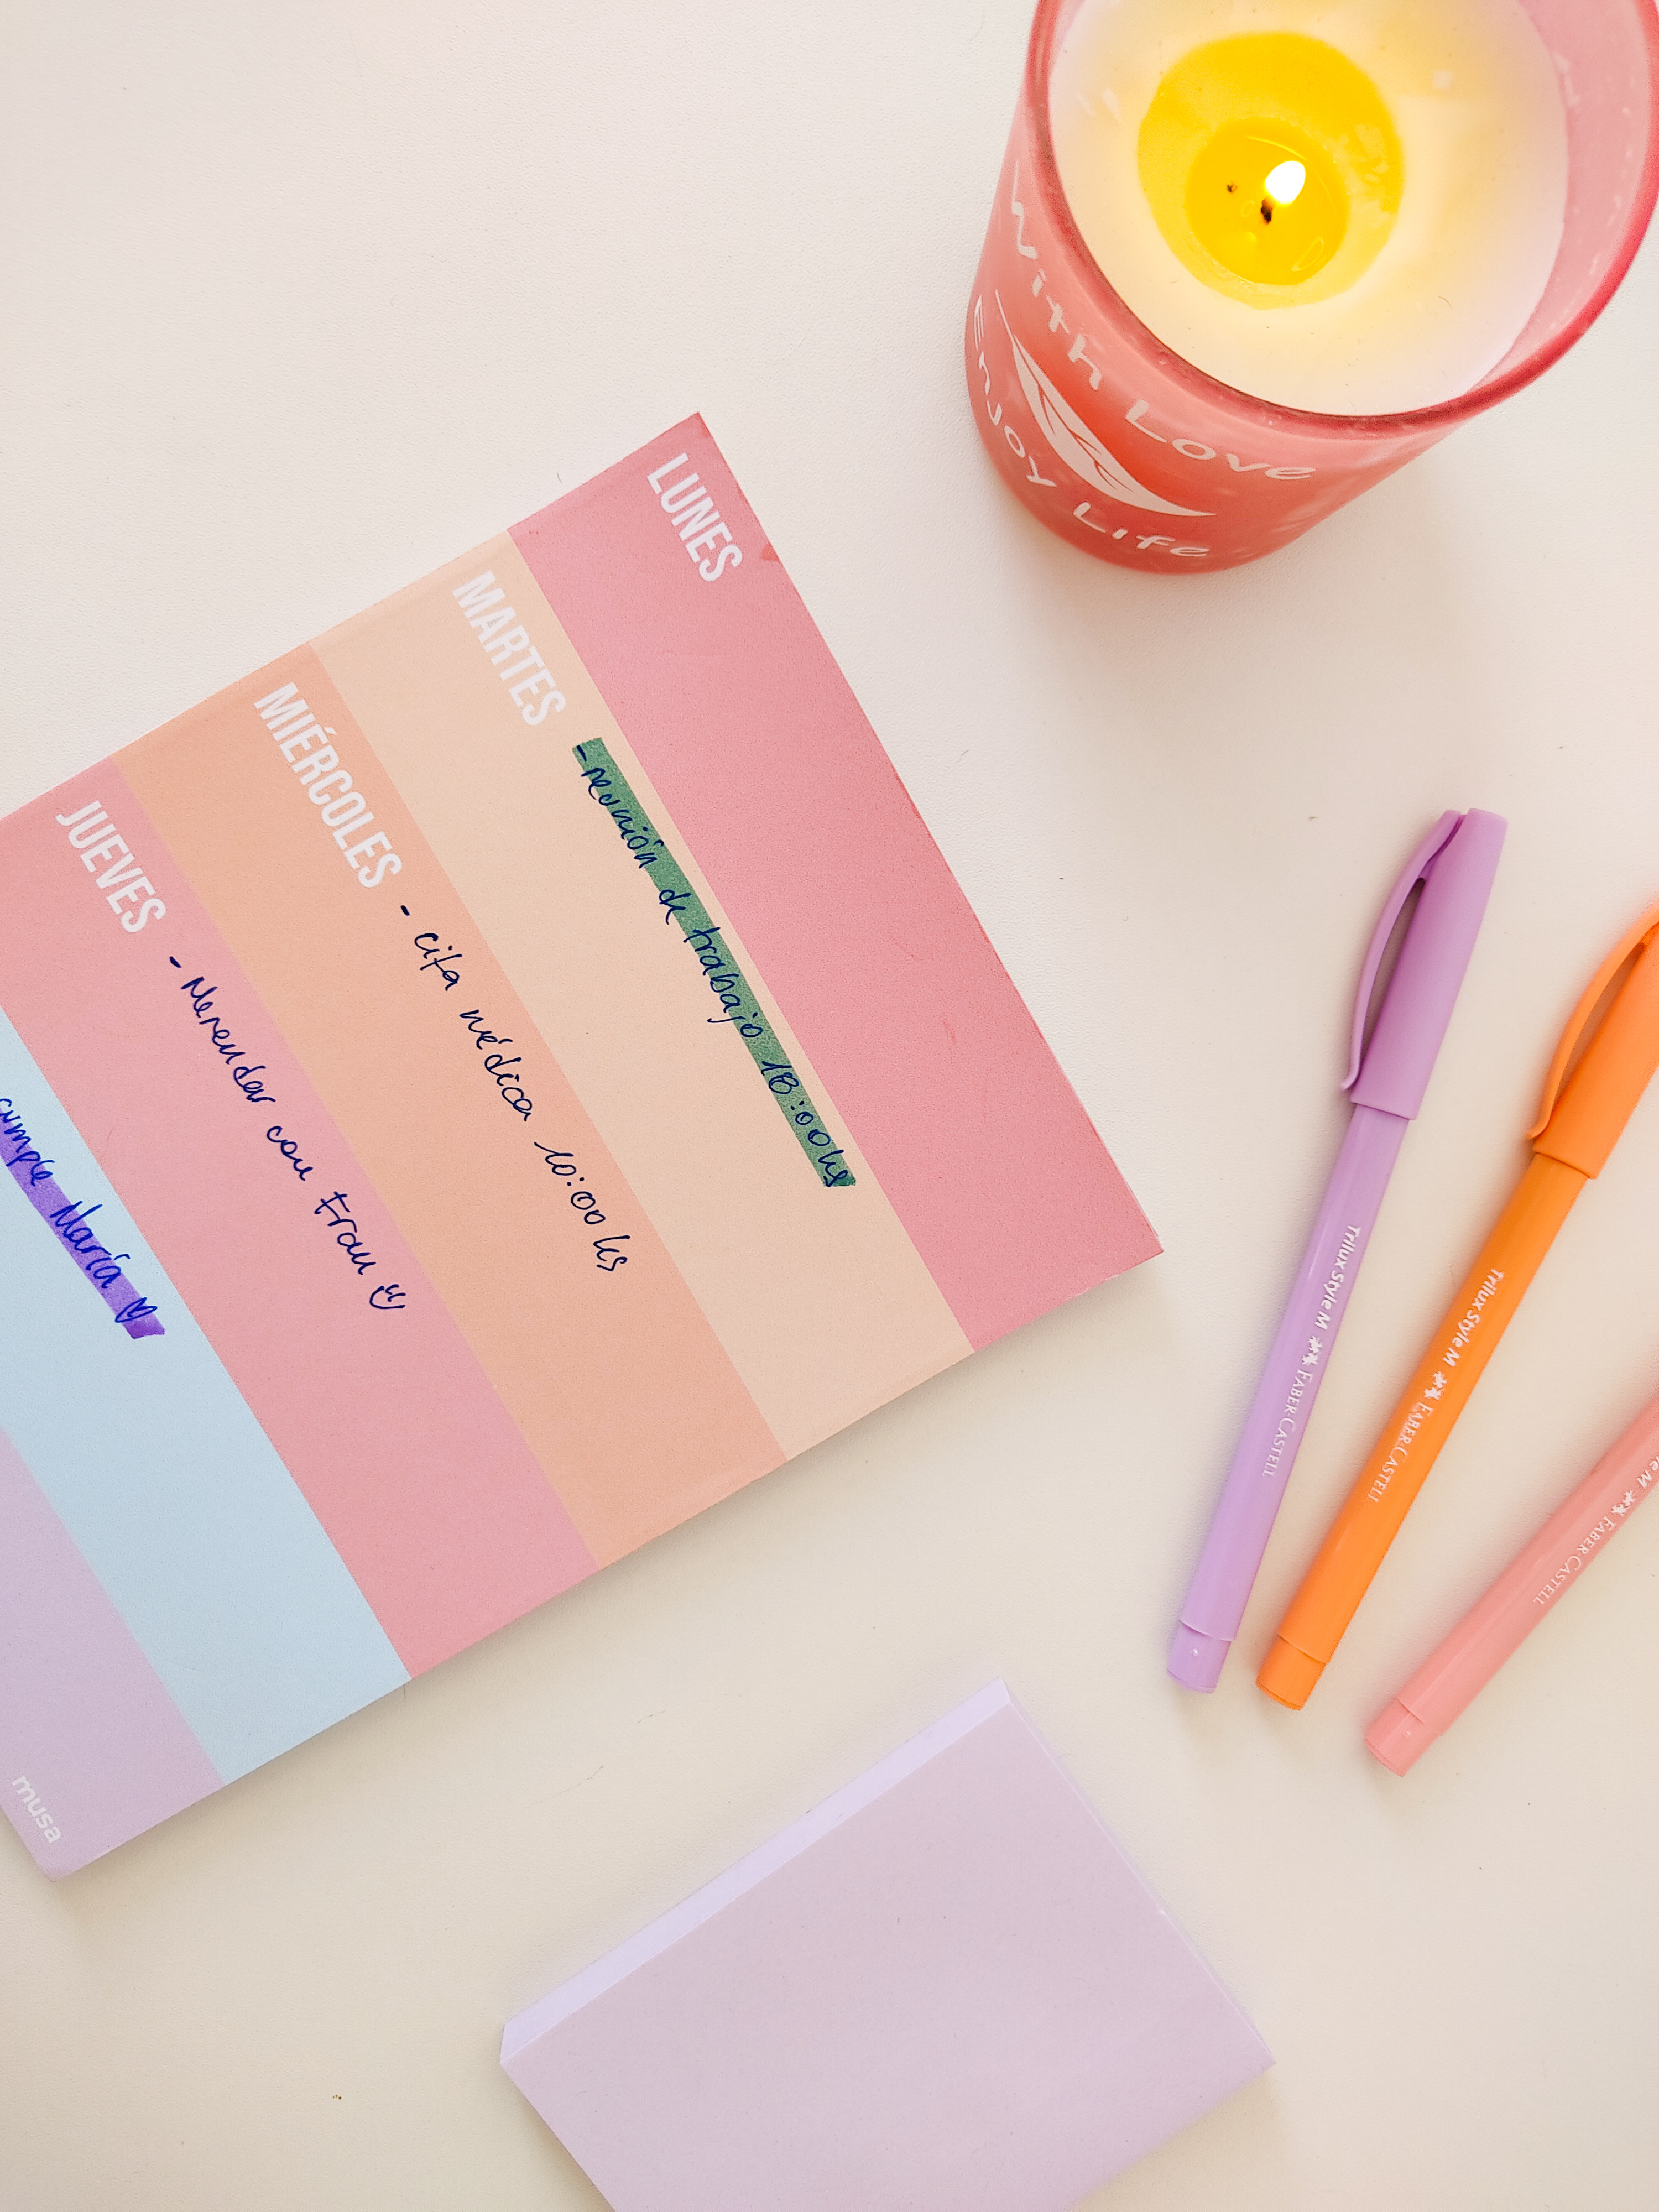 With Love
Enjoy Life
LUNES
MARTES
- reunión de trabajo 18:00hs
MIÉRCOLES
- cita médica 10:00 hs
JUEVES
- Merendar con Fran
cumple María
musa
Trilux Style M FABER-CASTELL
Trilux Style M FABER-CASTELL
M FABER-CASTELL